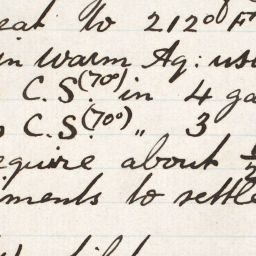 eat to 212° F
in warm Aq: usi
C.S.(70°) in 4 ga
C.S.(70°) „ 3
equire about
iments to settle